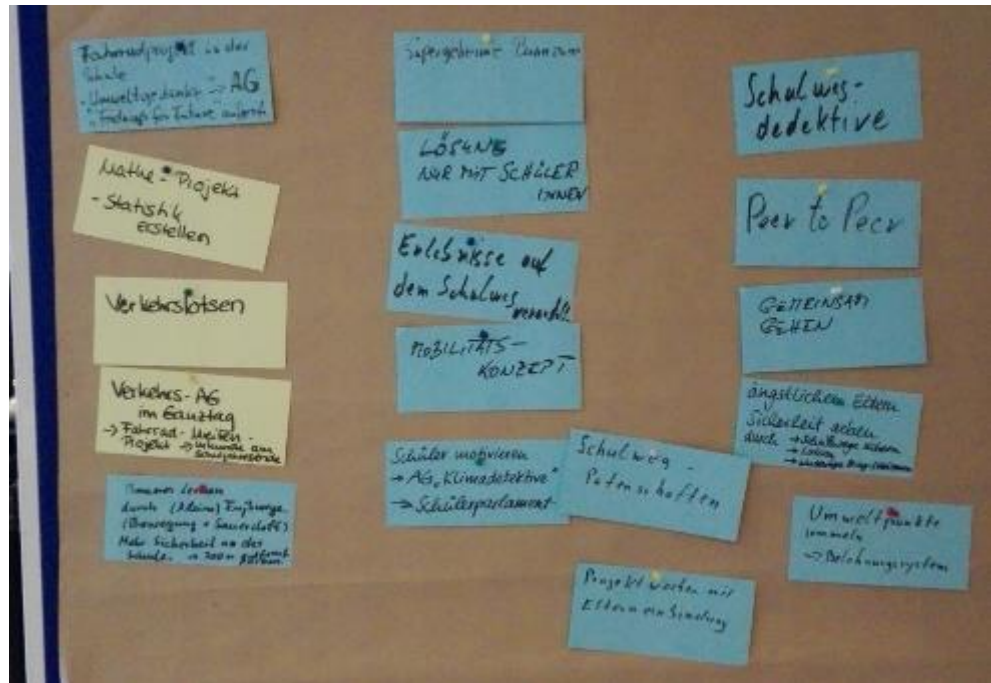 Fahrradprojekt in der
Schule
- Umweltgedanke → AG
"Fridays for Future"
Mathe-Projekt
- Statistik
erstellen
Verkehrslotsen
Verkehrs-AG
im Ganztag
→ Fahrrad-Meilen-
Projekt → Urkunde am
Schuljahresende
Lernen
durch (kleine) Fußwege
(Bewegung + Sauerstoff)
Mehr Sicherheit an der
Schule.
LÖSUNG
NUR MIT SCHÜLER
INNEN
Erlebnisse auf
dem Schulweg
MOBILITÄTS-
KONZEPT
Schüler motivieren
→ AG „Klimadetektive"
→ Schülerparlament
Schulweg-
Patenschaften
Projektwochen mit
Elterneinbindung
Schulweg-
dedektive
Peer to Peer
GEMEINSAM
GEHEN
ängstlichen Eltern
Sicherheit geben
durch → Schulwege sichern
→ Lotsen
Umweltpunkte
sammeln
→ Belohnungssystem